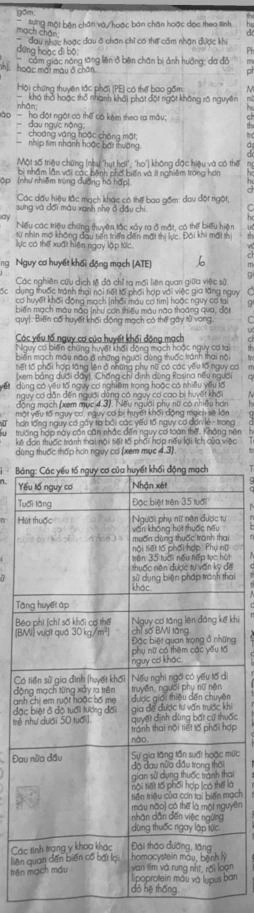 gồm:
- sưng một bên chân và/hoặc bàn chân hoặc dọc theo tĩnh
mạch chân;
- đau nhức hoặc đau ở chân chỉ có thể cảm nhận được khi
đứng hoặc đi bộ;
- cảm giác nóng tăng lên ở bên chân bị ảnh hưởng; da đỏ
hoặc mất màu ở chân.
Hội chứng thuyên tắc phổi (PE) có thể bao gồm:
- khó thở hoặc thở nhanh khởi phát đột ngột không rõ nguyên
nhân;
- ho đột ngột có thể có kèm theo ra máu;
- đau ngực nặng;
- choáng váng hoặc chóng mặt;
- nhịp tim nhanh hoặc bất thường.
Một số triệu chứng (như "hụt hơi", "ho") không đặc hiệu và có thể
bị nhầm lẫn với các bệnh phổ biến và ít nghiêm trọng hơn
(như nhiễm trùng đường hô hấp).
Các dấu hiệu tắc mạch khác có thể bao gồm: đau đột ngột,
sưng và đổi màu xanh nhẹ ở đầu chi.
Nếu các triệu chứng thuyên tắc xảy ra ở mắt, có thể biểu hiện
từ nhìn mờ không đau tiến triển đến mất thị lực. Đôi khi mất thị
lực có thể xuất hiện ngay lập tức.
Nguy cơ huyết khối động mạch (ATE)
Các nghiên cứu dịch tễ đã chỉ ra mối liên quan giữa việc sử
dụng thuốc tránh thai nội tiết tố phối hợp với việc gia tăng nguy
cơ huyết khối động mạch (nhồi máu cơ tim) hoặc nguy cơ tai
biến mạch máu não (như cơn thiếu máu não thoáng qua, đột
quỵ). Biến cố huyết khối động mạch có thể gây tử vong.
Các yếu tố nguy cơ của huyết khối động mạch
Nguy cơ biến chứng huyết khối động mạch hoặc nguy cơ tai
biến mạch máu não ở những người dùng thuốc tránh thai nội
tiết tố phối hợp tăng lên ở những phụ nữ có các yếu tố nguy cơ
(xem bảng dưới đây). Chống chỉ định dùng Rosina nếu người
dùng có yếu tố nguy cơ nghiêm trọng hoặc có nhiều yếu tố
nguy cơ dẫn đến người dùng có nguy cơ cao bị huyết khối
động mạch (xem mục 4.3). Nếu người phụ nữ có nhiều hơn
một yếu tố nguy cơ, nguy cơ bị huyết khối động mạch sẽ lớn
hơn tổng nguy cơ gây ra bởi các yếu tố nguy cơ đơn lẻ - trong
trường hợp này cần cân nhắc đến nguy cơ toàn thể. Không nên
kê đơn thuốc tránh thai nội tiết tố phối hợp nếu lợi ích của việc
dùng thuốc thấp hơn nguy cơ (xem mục 4.3).
Bảng: Các yếu tố nguy cơ của huyết khối động mạch
Yếu tố nguy cơ
Nhận xét
Tuổi tăng
Đặc biệt trên 35 tuổi
Hút thuốc
Người phụ nữ nên được tư
vấn không hút thuốc nếu
muốn dùng thuốc tránh thai
nội tiết tố phối hợp. Phụ nữ
trên 35 tuổi nếu tiếp tục hút
thuốc nên được tư vấn kỹ để
sử dụng biện pháp tránh thai
khác.
Tăng huyết áp
Béo phì (chỉ số khối cơ thể
(BMI) vượt quá 30 kg/m²)
Nguy cơ tăng lên đáng kể khi
chỉ số BMI tăng.
Đặc biệt quan trọng ở những
phụ nữ có thêm các yếu tố
nguy cơ khác.
Có tiền sử gia đình (huyết khối
động mạch từng xảy ra trên
anh chị em ruột hoặc bố mẹ
đặc biệt ở độ tuổi tương đối
trẻ như dưới 50 tuổi).
Nếu nghi ngờ có yếu tố di
truyền, người phụ nữ nên
được giới thiệu đến chuyên
gia để được tư vấn trước khi
quyết định dùng bất cứ thuốc
tránh thai nội tiết tố phối hợp
nào.
Đau nửa đầu
Sự gia tăng tần suất hoặc mức
độ đau nửa đầu trong thời
gian sử dụng thuốc tránh thai
nội tiết tố phối hợp (có thể là
tiền triệu của cơn tai biến mạch
máu não) có thể là một nguyên
nhân dẫn đến việc ngừng
dùng thuốc ngay lập tức.
Các tình trạng y khoa khác
liên quan đến biến cố bất lợi
trên mạch máu
Đái tháo đường, tăng
homocystein máu, bệnh lý
van tim và rung nhĩ, rối loạn
lipoprotein máu và lupus ban
đỏ hệ thống.